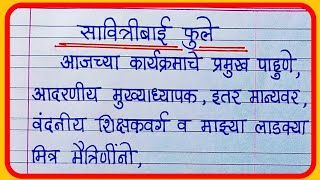 सावित्रीबाई फुले
आजच्या कार्यक्रमाचे प्रमुख पाहुणे,
आदरणीय मुख्याध्यापक, इतर मान्यवर,
वंदनीय शिक्षकवर्ग व माझ्या लाडक्या
मित्र मैत्रिणींनो,